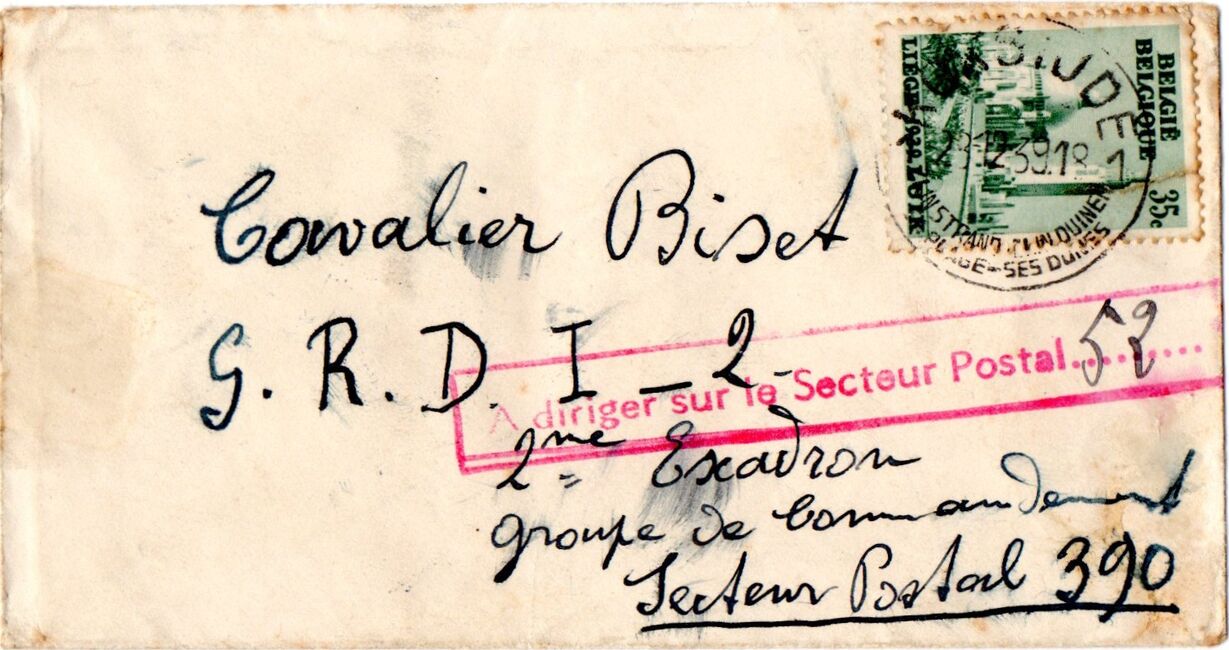 BELGIË
BELGIQUE
35c
LIEGE 1939 LUIK
KOKSIJDE
12 39 18
1
ZIJN STRAND ZIJN DUINEN
PLAGE - SES DUNES
Cavalier Biset
G. R. D. I _ 2 -
A diriger sur le Secteur Postal.......... 52
2me Escadron
groupe de Commandement
Secteur Postal 390